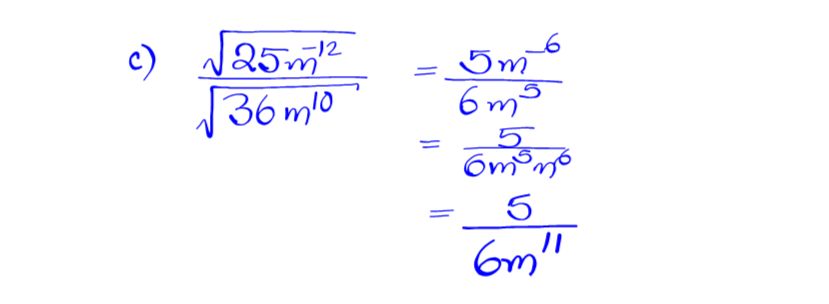 c) √25m⁻¹² / √36m¹⁰ = 5m⁻⁶ / 6m⁵
= 5 / 6m⁵m⁶
= 5 / 6m¹¹